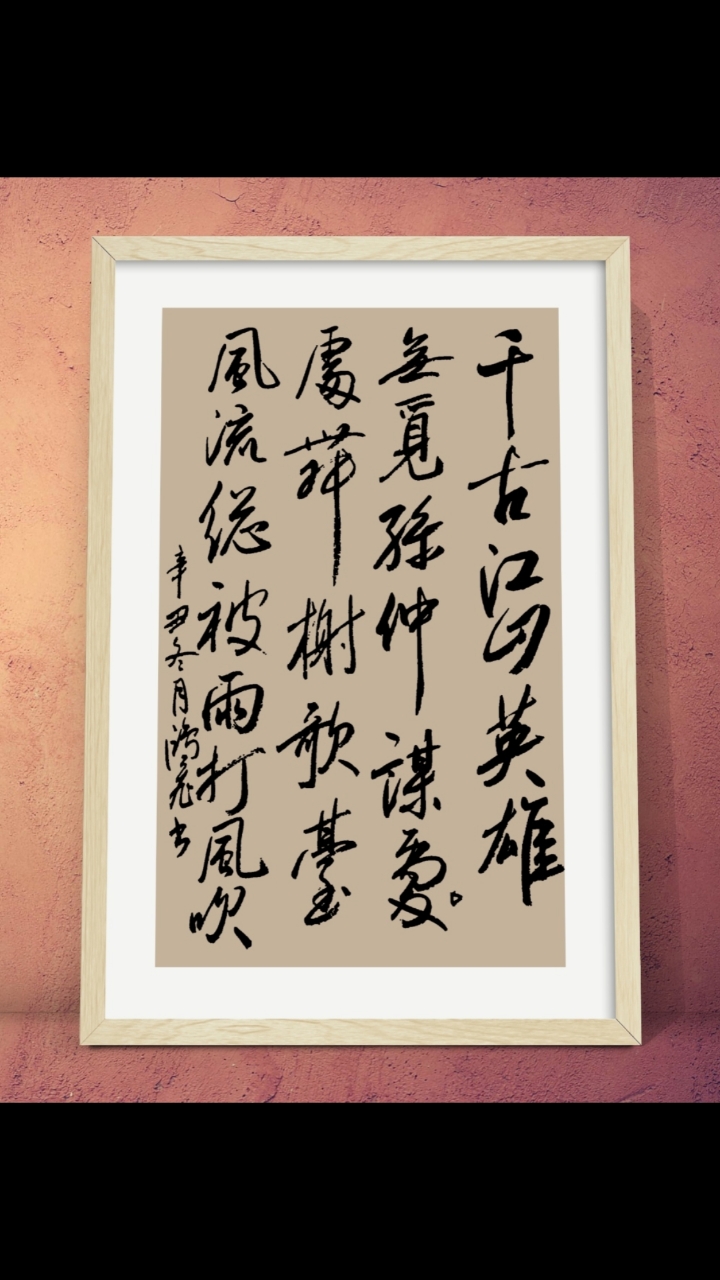 千古江山英雄
無覓孫仲謀處。
處舞榭歌臺
風流総被雨打風吹
辛丑冬月鴻書